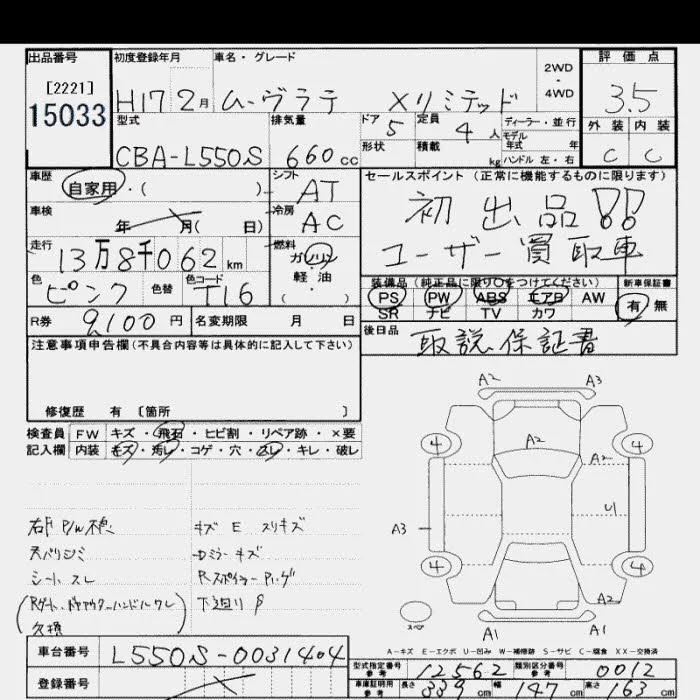 出品番号 初度登録年月 車名・グレード 2WD・4WD 評価点
[2221] 15033 H17 2月 ムーヴラテ Xリミテッド 3.5
型式 排気量 ドア 5 定員 4人 ディーラー・並行 外装 内装
CBA-L550S 660cc 形状 積載 kg モデル年式 年 ハンドル 左・右 C C
車歴 自家用・( ) シフト AT セールスポイント (正常に機能するものに限ります)
車検 年 月( 日) 冷房 AC 初出品!!
走行 13万8千062km 燃料 ガソリン 軽油 ( ・ ) ユーザー買取車
色 ピンク 色替 色コード T16 装備品 (純正品に限り〇をつけてください) 新車保証書
PS PW ABS エアB AW 有・無
SR ナビ TV カワ
R券 9,100円 名変期限 月 日 後日品 取説、保証書
注意事項申告欄(不具合内容等は具体的に記入して下さい)
修復歴 有 〔箇所 〕
検査員 FW キズ・飛石・ヒビ割・リペア跡・×要
記入欄 内装 キズ・汚レ・コゲ・穴・スレ・キレ・破レ
A2 A3
4 A2 4
A2
A3 U
4 4
A2
スペア A1 A1
キズ E スリキズ
シートスレ
下廻り
欠損
A-キズ E-エクボ U-凹み W-補修跡 S-サビ C-腐食 XX-交換済
車台番号 L550S-0031404 型式指定番号 参考 12562 類別区分番号 参考 0012
登録番号 車庫証明用 参考 長さ 339cm 幅 147cm 高さ 163cm